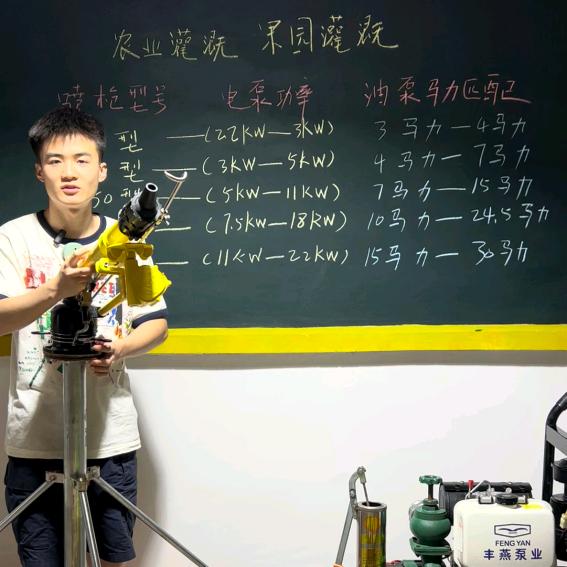 农业灌溉 果园灌溉
喷枪型号 电泵功率 油泵马力匹配
型 —(2.2KW—3KW) 3马力—4马力
型 —(3KW—5KW) 4马力—7马力
50型 (5KW—11KW) 7马力—15马力
(7.5KW—18KW) 10马力—24.5马力
(11KW—22KW) 15马力—30马力
FENG YAN
丰燕泵业